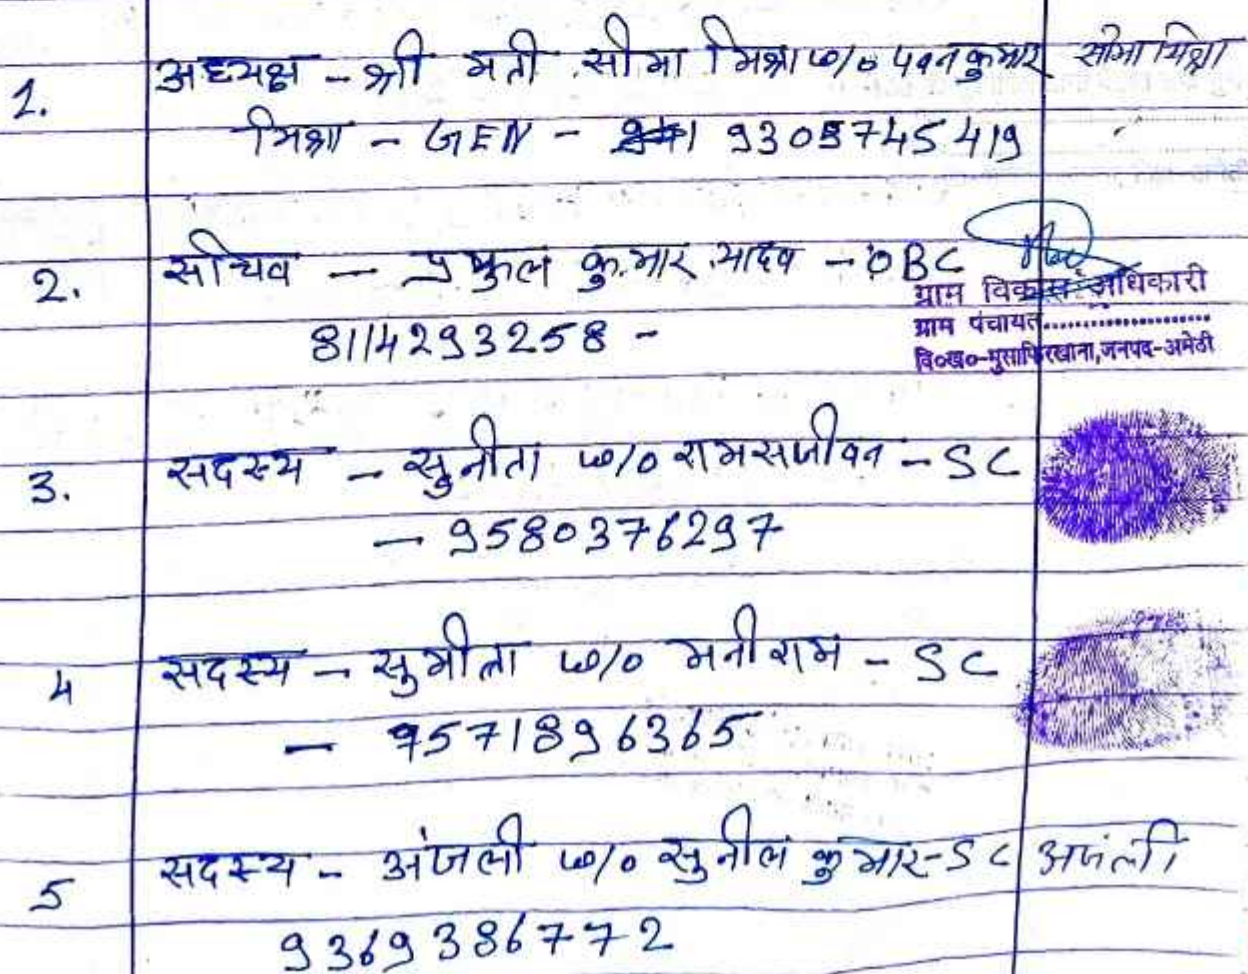 1. अध्यक्ष - श्री मती सीमा मिश्रा w/o पवन कुमार सीमा मिश्रा
मिश्रा - GEN - 9305745419
2. सचिव - प्रफुल कुमार यादव - OBC
ग्राम विकास अधिकारी
ग्राम पंचायत....................
8114293258 -
वि०ख०-मुसाफिरखाना, जनपद-अमेठी
3. सदस्य - सुनीता w/o रामसजीवन - SC
- 9580376297
4 सदस्य - सुमीता w/o मनीराम - SC
- 9571896365
5 सदस्य - अंजली w/o सुनील कुमार - SC अजंली
9369386772